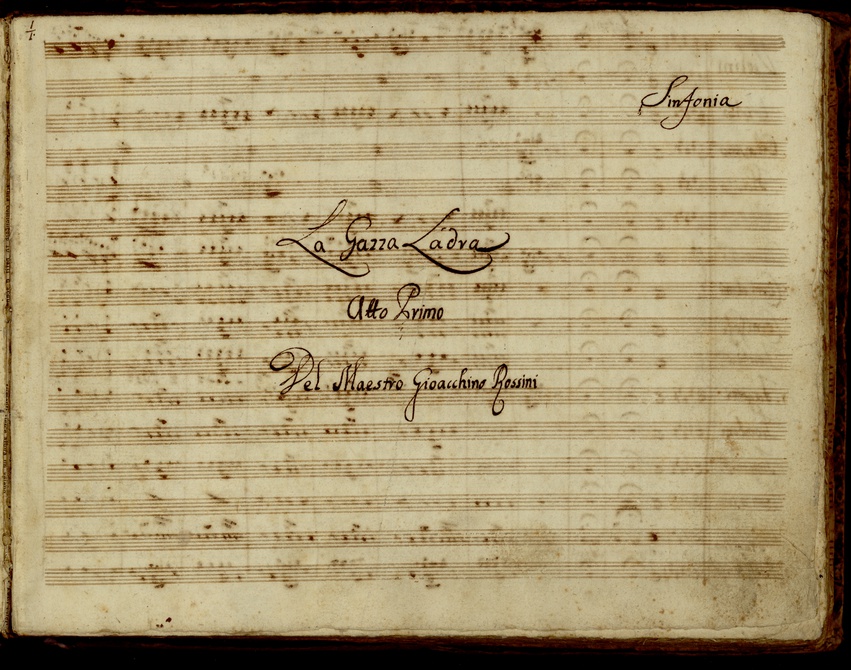 1/1
Sinfonia
La Gazza Ladra
Atto Primo
Del Maestro Gioacchino Rossini